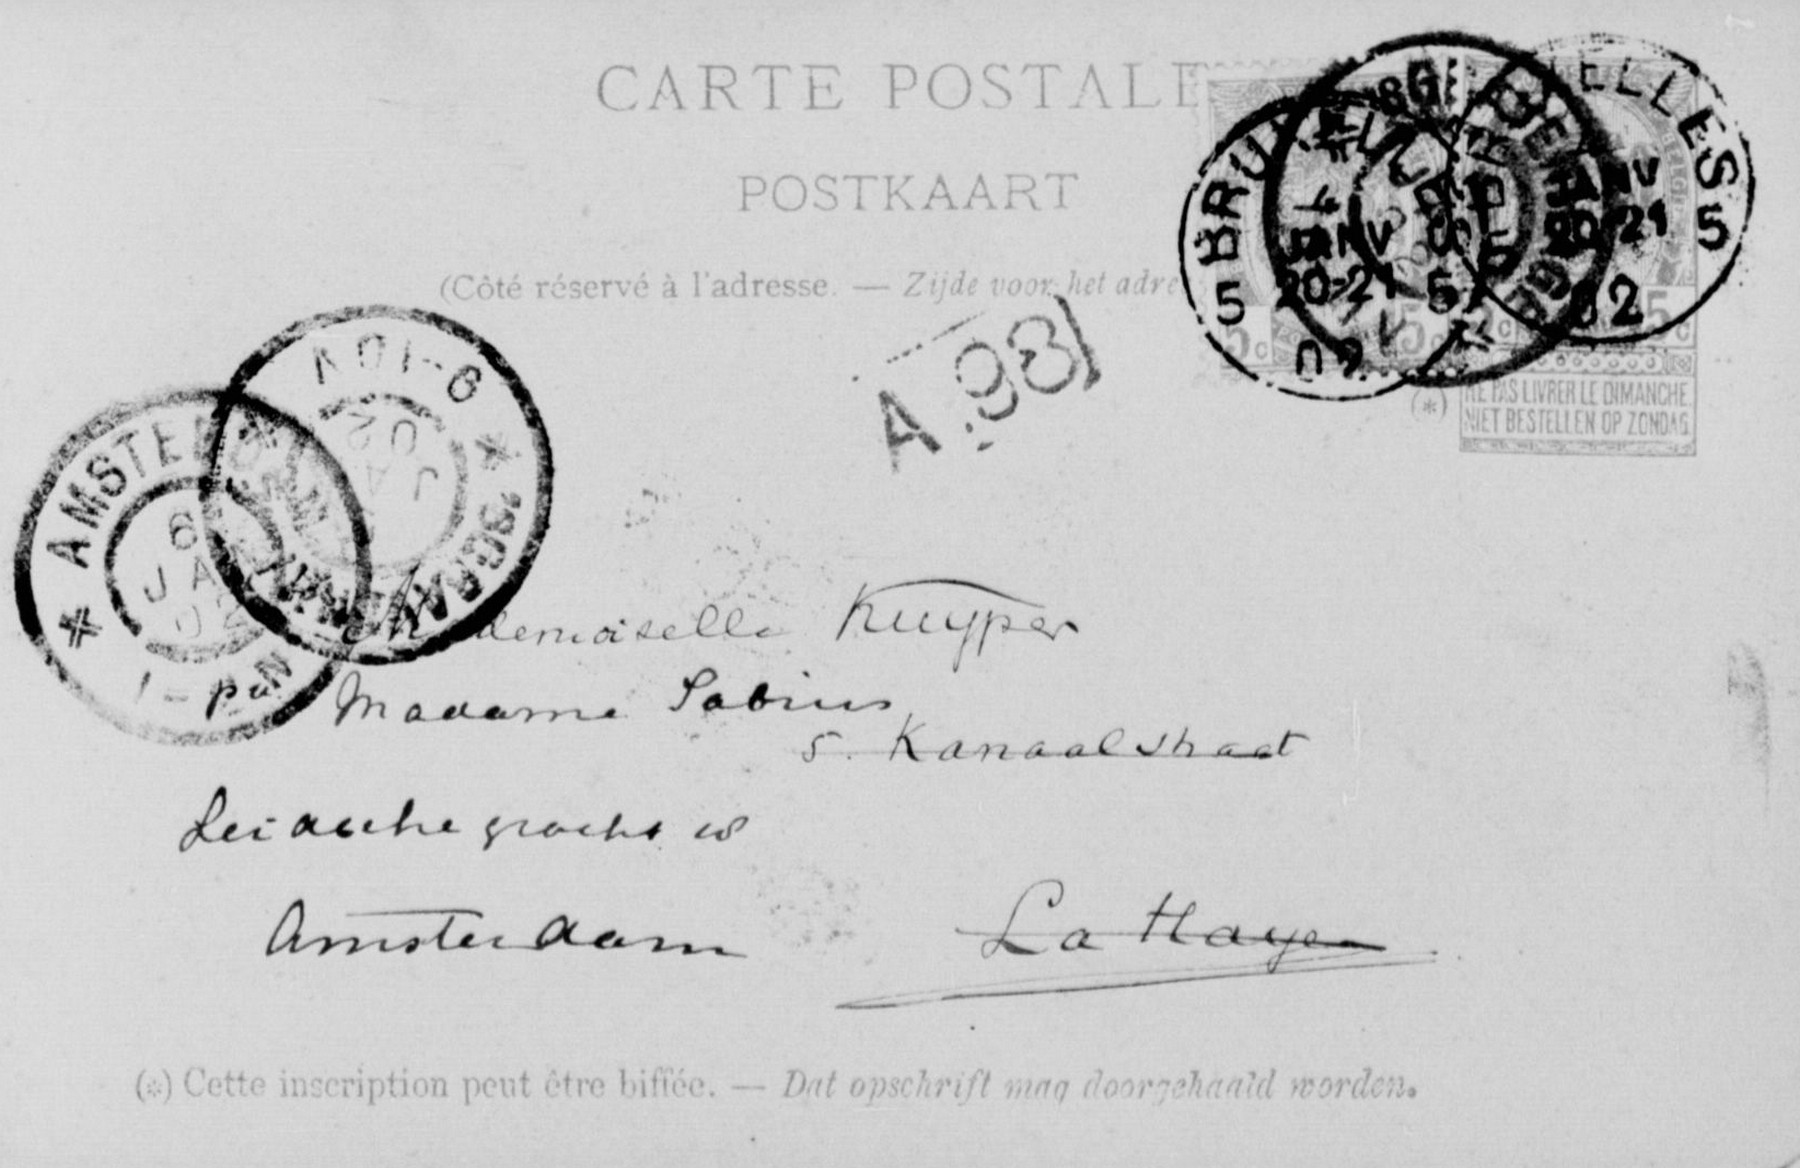 CARTE POSTALE
POSTKAART
(Côté réservé à l'adresse. — Zijde voor het adre
BRUXELLES
5 5
JANV
20-21
02
ELLES
JANV
20-21
5
02
5c
5c
5c
(*) NE PAS LIVRER LE DIMANCHE
NIET BESTELLEN OP ZONDAG
A.98
8-10V
JA
02
'SGRAVENHAGE
AMSTERDAM
6
JA
02
Mademoiselle Kuyper
Madame Sabius
5. Kanaalstraat
Leidschegracht
Amsterdam
La Haye
(*) Cette inscription peut être biffée. — Dat opschrift mag doorgehaald worden.